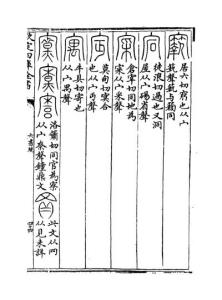 居六切窮也从宀
𥷚聲𥷚與鞫同
徒浪切過也又洞
屋从宀碭省聲
倉宰切同地為
寀从宀釆聲
莫甸切冥合
也从宀丏聲
牛具切寄也
从宀禺聲
洛蕭切同官為寮
从宀尞聲鐘鼎文
此文从囧
从見未詳
欽定四庫全書
六書統